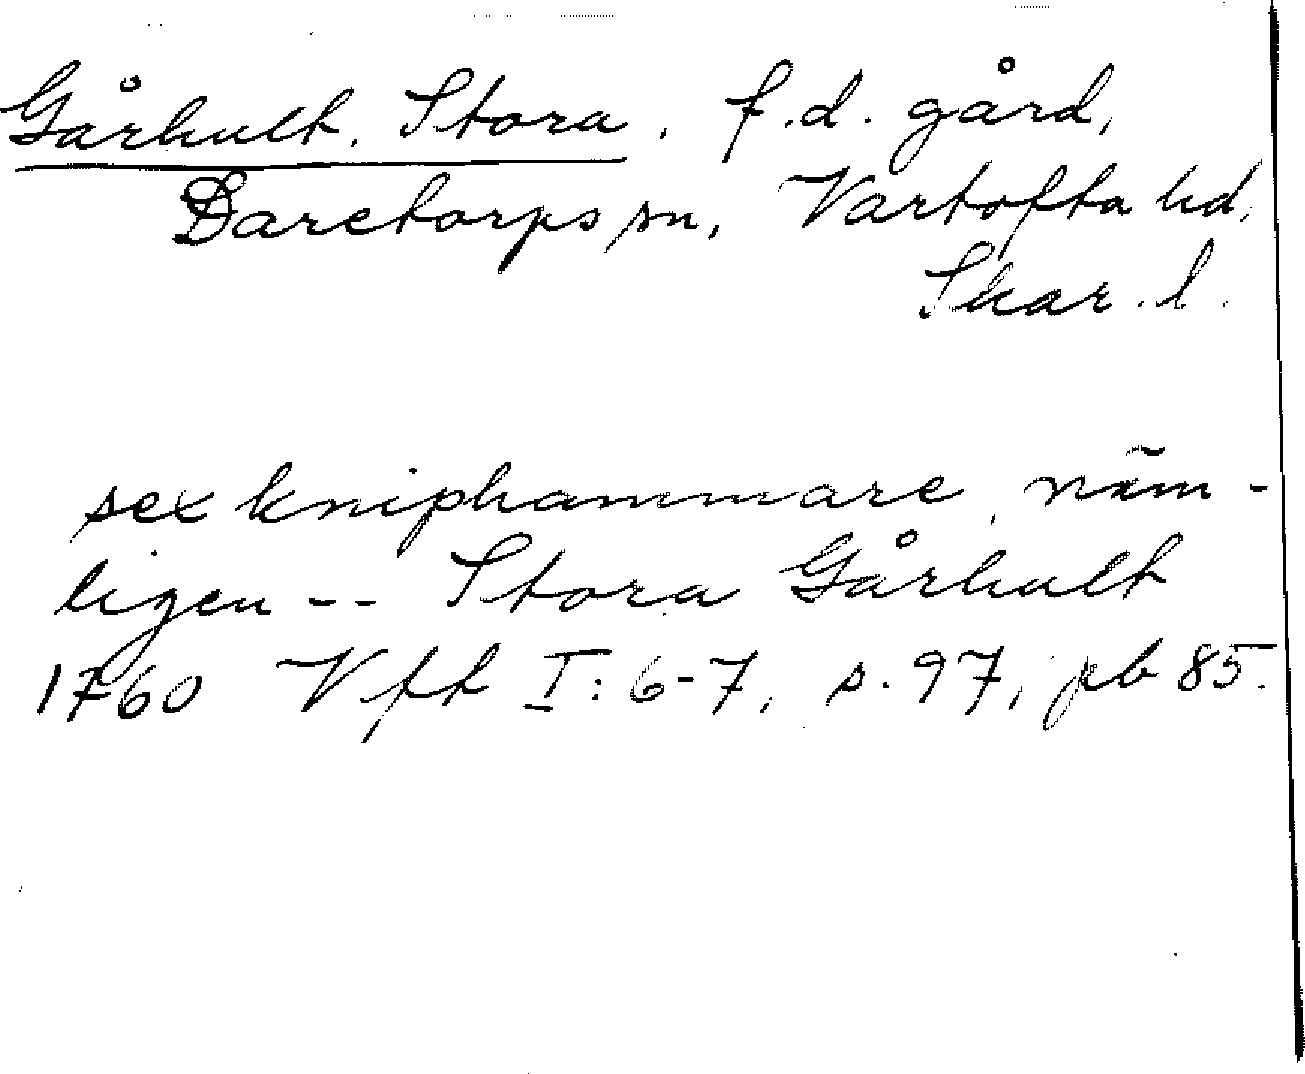 Gårhult, Stora, f.d. gård,
Daretorps sn, Vartofta hd,
Skar. l.
sex kniphammare, näm-
ligen -- Stora Gårhult
1760 Vft I: 6-7, s. 97, pb 85.